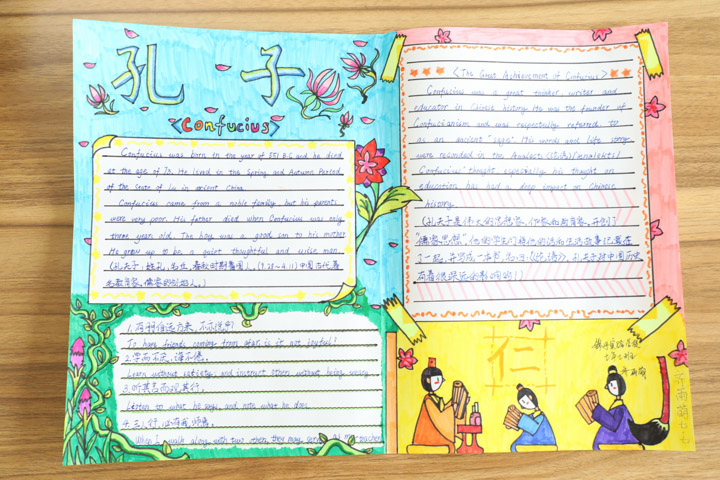 孔子
<Confucius>
Confucius was born in the year of 551 B.C and he died
at the age of 73. He lived in the Spring and Autumn Period
of the state of Lu in ancient China.
Confucius came from a noble family but his parents
were very poor. His father died when Confucius was only
three year old. The boy was a good son to his mother
He grew up to be a quiet thoughtful and wise man.
(孔夫子:姓孔,名丘,春秋时期鲁国人,(9.28~4.11)中国古代著
名教育家,儒家的创始人.)
1.有朋自远方来,不亦说乎?
To have friends coming from afar: is it not joyful?
2.学而不厌,诲不倦.
Learn without satiety, and instruct others without being weary
3.听其言而观其行.
Listen to what he says, and note what he does.
4.三人行,必有我师焉.
When I walk along with two others, they may serve as my teachers
<The Great Achievement of Confucius>
Confucius was a great thinker, writer and
educator in Chinese history. He was the founder of
Confucianism and was respectfully referred to
as an ancient "sage". His words and life story
were recorded in the Analects
Confucius' thought especially his thought on
education has had a deep impact on Chinese
history.
(孔夫子是伟大的思想家,作家和教育家,开创了
"儒家思想"
一起,并写成一本书,名曰《论语》,孔夫子对中国历史
有着很深远的影响的!)
仁